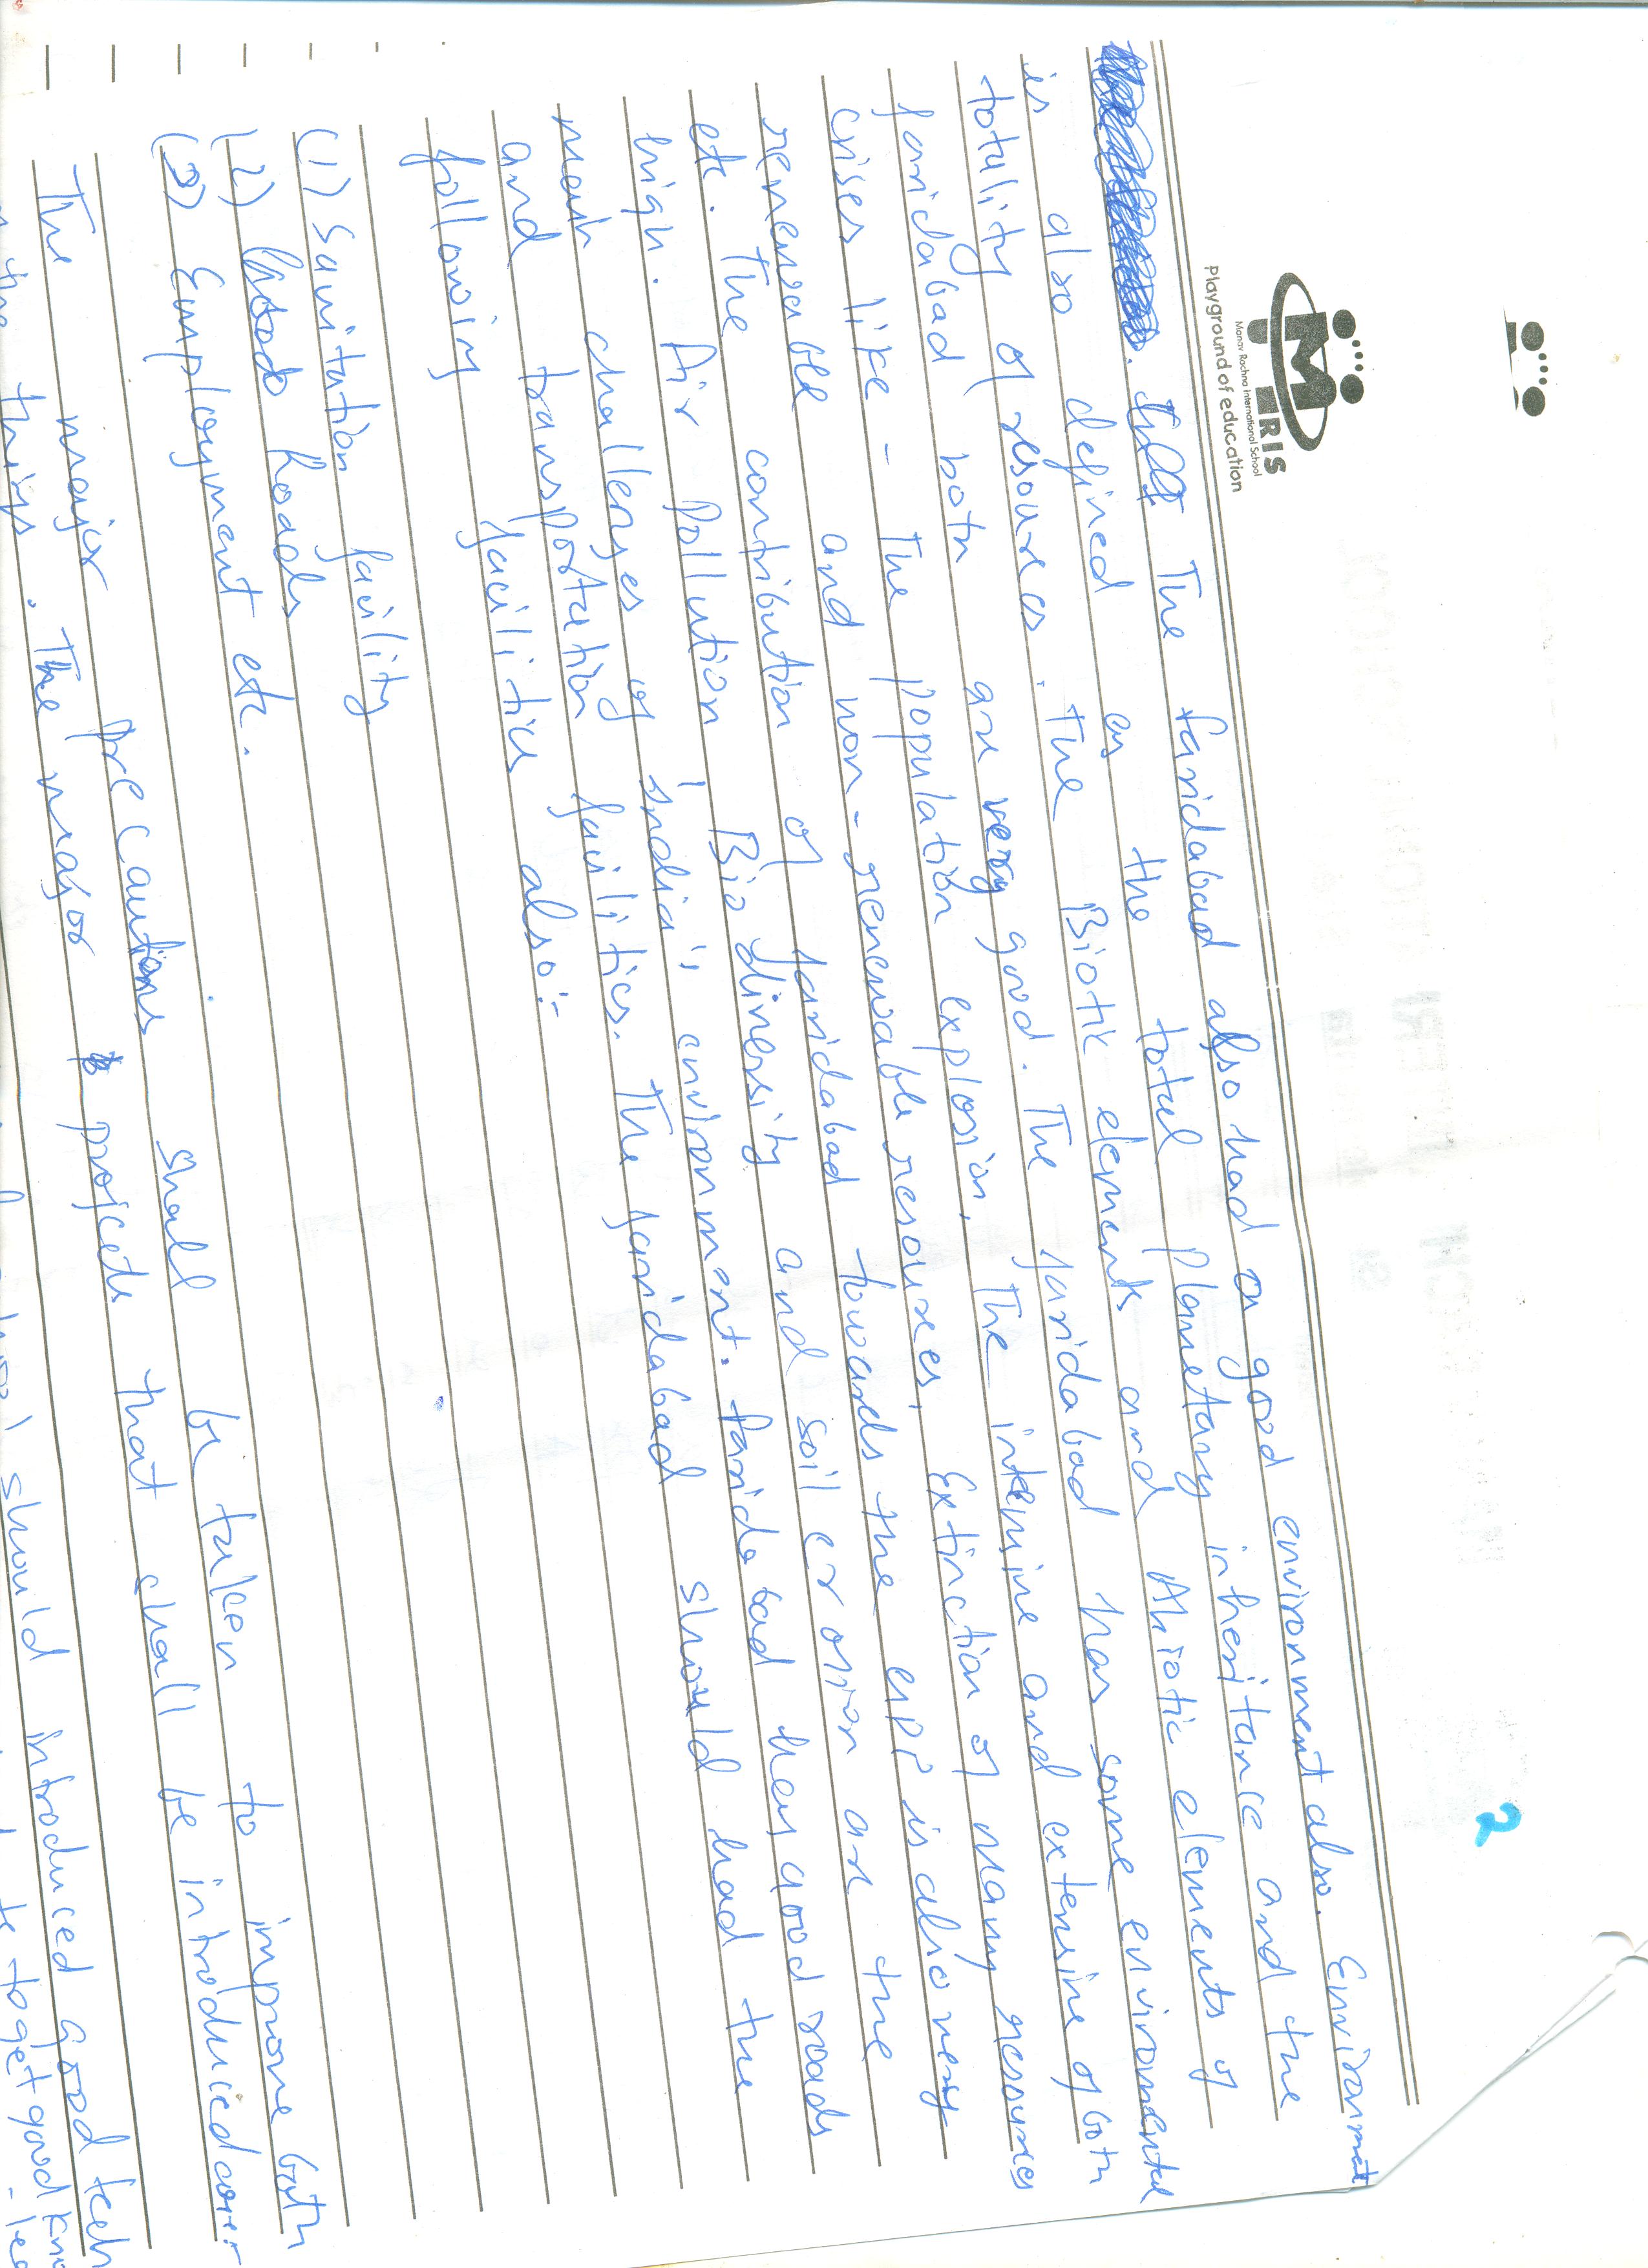 The faridabad also had a good environment also. Environment
is also defined as the total Planetary inheritance and the
totality of resources. The Biotic elements and Abiotic elements of
faridabad both are very good. The faridabad has some enviromental
crises like - The population explosion, The intensive and extensive of both
renewable and non-renewable resources, Extinction of many resources
etc. The contribution of faridabad towards the epi is also very
high. Air Pollution Bio diversity and soil erosion are the
challenges of India's environment. Faridabad has good roads
and transportation facilities. The faridabad should had the
following facilities also:-
(1) Sanitation facility
(2) Roads
(3) Employment etc.
The major precautions shall be taken to improve both
things. The major projects that shall be introduced over
should introduced good tech
to get good
MRIS
Manav Rachna International School
Playground of education
2